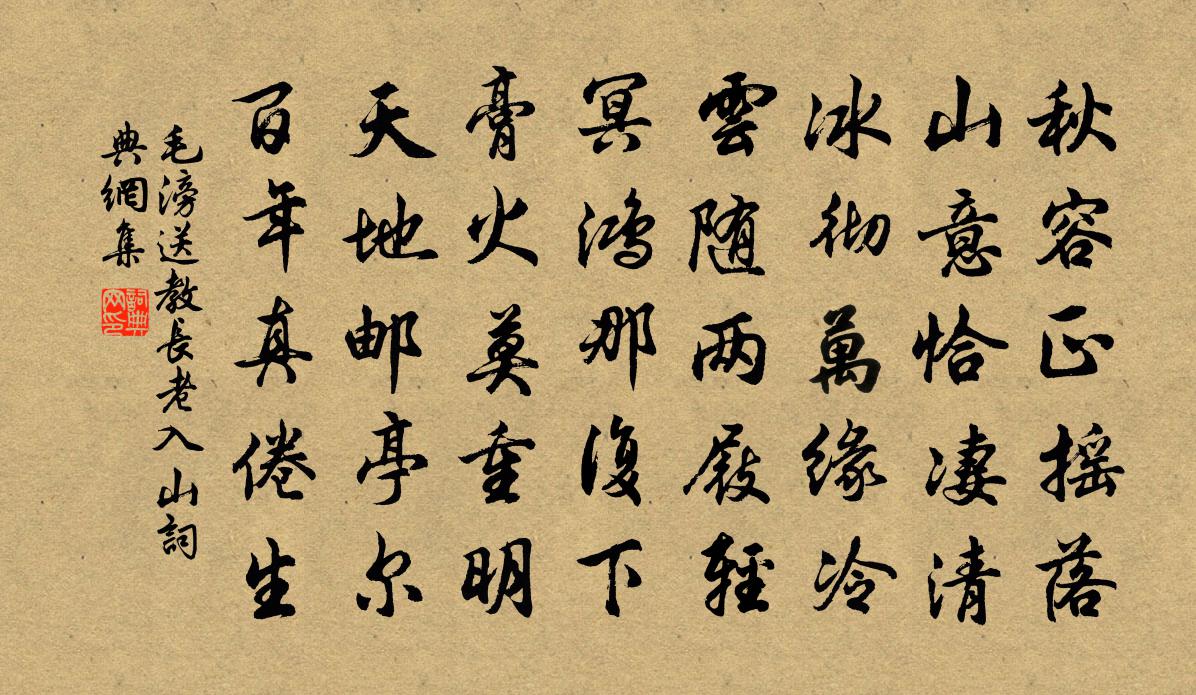 秋容正摇落
山意恰凄清
冰彻萬缘冷
雲随两屐輕
冥鸿那復下
膏火莫重明
天地邮亭尔
百年真倦生
毛滂送教長老入山詞
典網集
詞典
网印